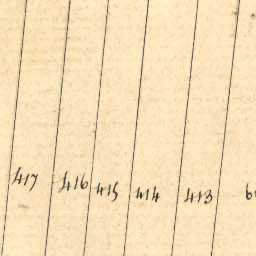 417 416 415 414 413